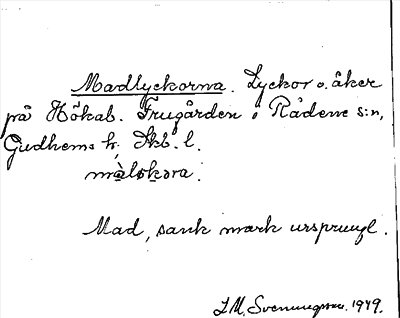 Madlyckorna. Lyckor o. åker
på Hökab. Frugården i Rådene s:n,
Gudhems h, Skb. l.
målokora.
Mad, sank mark ursprungl.
J.M. Svenungsson. 1949.